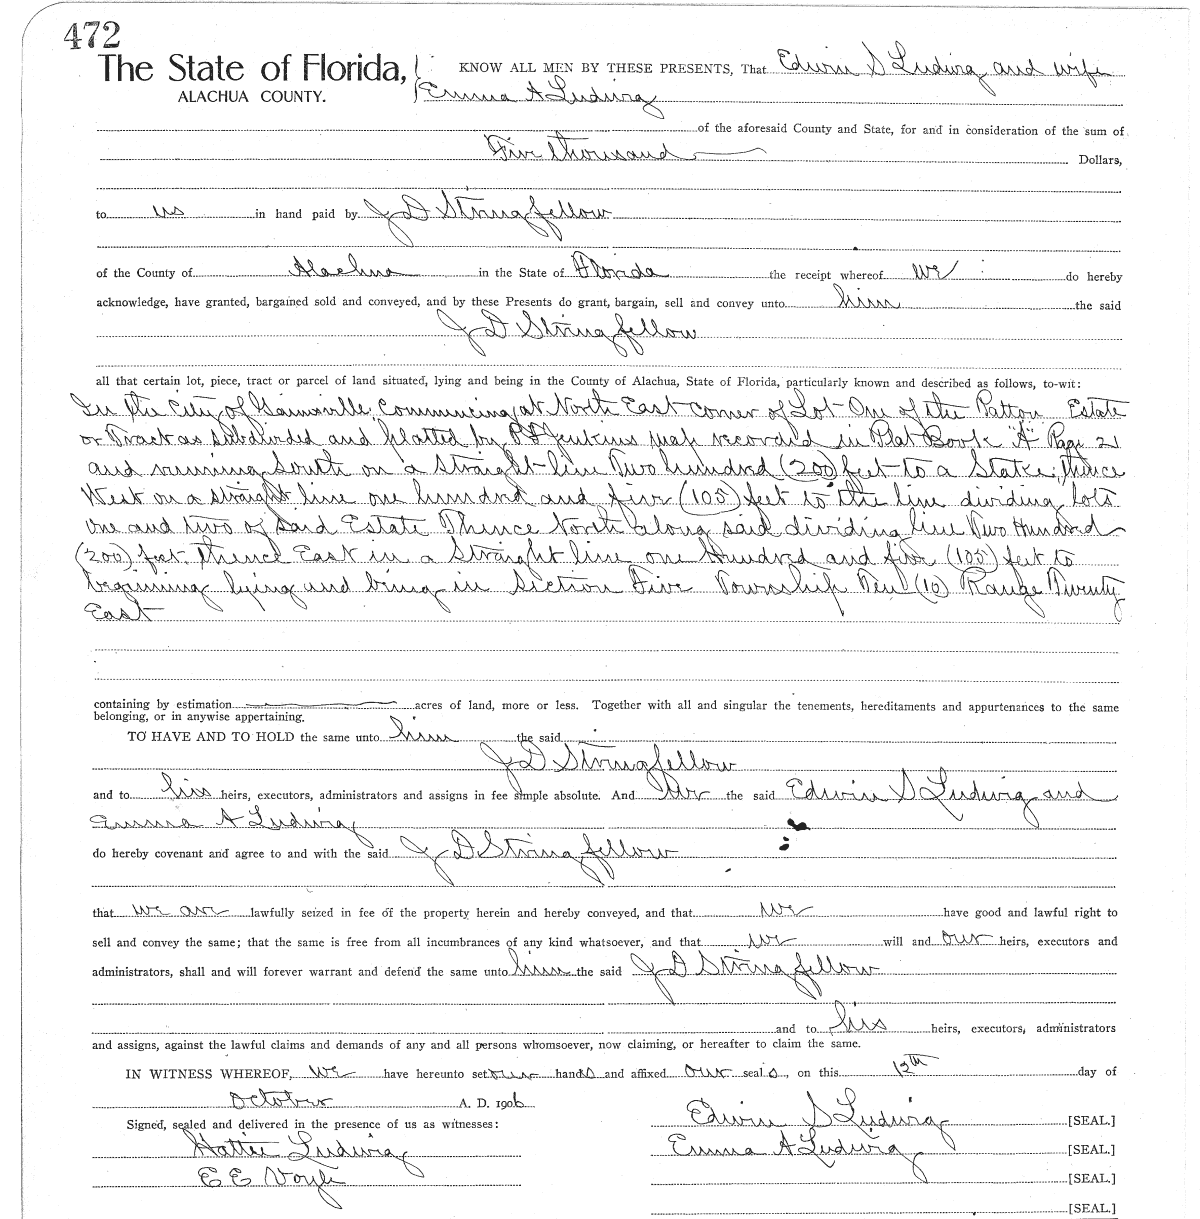 472
The State of Florida, KNOW ALL MEN BY THESE PRESENTS, That Edwin S Ludwig and wife
ALACHUA COUNTY. Emma A Ludwig
of the aforesaid County and State, for and in consideration of the sum of
Five thousand Dollars,
to us in hand paid by J D Stringfellow
of the County of Alachua in the State of Florida the receipt whereof we do hereby
acknowledge, have granted, bargained sold and conveyed, and by these Presents do grant, bargain, sell and convey unto him the said
J D Stringfellow
all that certain lot, piece, tract or parcel of land situated, lying and being in the County of Alachua, State of Florida, particularly known and described as follows, to-wit:
In the City of Gainesville, Commencing at North East corner of Lot One of the Patton Estate
or Tract as subdivided and platted by Jenkins map recorded in Plat Book "A" Page 21
and running South on a straight line Two hundred (200) feet to a Stake, thence
West on a straight line one hundred and five (105) feet to the line dividing lots
one and two of said Estate Thence North along said dividing line Two Hundred
(200) feet. thence East in a Straight line one Hundred and five (105) feet to
beginning lying and being in Section Five Township Ten (10) Range Twenty
East
containing by estimation acres of land, more or less. Together with all and singular the tenements, hereditaments and appurtenances to the same
belonging, or in anywise appertaining.
TO HAVE AND TO HOLD the same unto him the said
J D Stringfellow
and to his heirs, executors, administrators and assigns in fee simple absolute. And We the said Edwin S Ludwig and
Emma A Ludwig
do hereby covenant and agree to and with the said J D Stringfellow
that we are lawfully seized in fee of the property herein and hereby conveyed, and that we have good and lawful right to
sell and convey the same; that the same is free from all incumbrances of any kind whatsoever, and that we will and our heirs, executors and
administrators, shall and will forever warrant and defend the same unto him the said J D Stringfellow
and to his heirs, executors, administrators
and assigns, against the lawful claims and demands of any and all persons whomsoever, now claiming, or hereafter to claim the same.
IN WITNESS WHEREOF, we have hereunto set our hands and affixed our seals, on this 12th day of
October A. D. 1906
Signed, sealed and delivered in the presence of us as witnesses: Edwin S Ludwig [SEAL.]
Hattie Ludwig Emma A Ludwig [SEAL.]
E E Voyle [SEAL.]
[SEAL.]